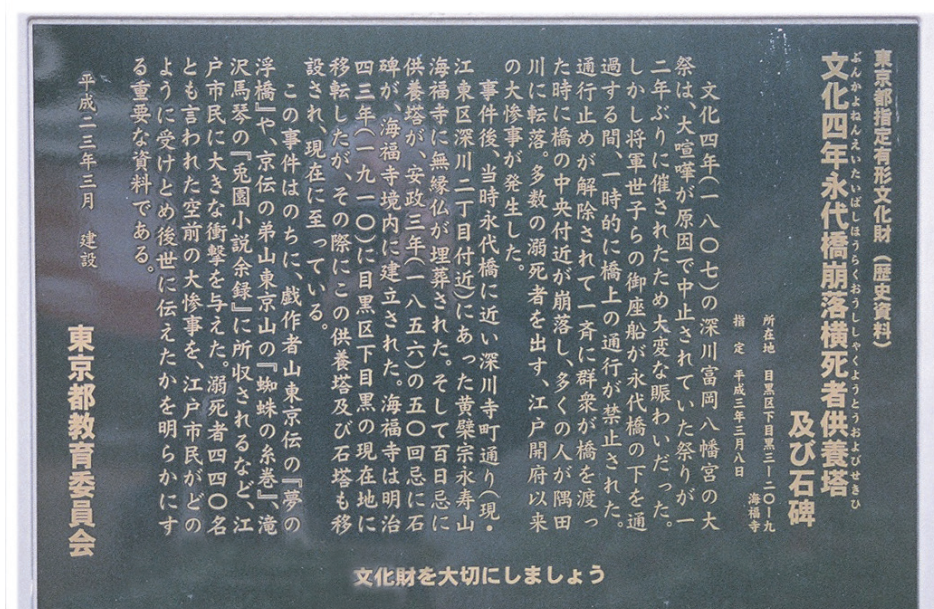 東京都指定有形文化財（歴史資料）
ぶんかよねんえいたいばしほうらくおうししゃくようとうおよびせきひ
文化四年永代橋崩落横死者供養塔
及び石碑
所在地　目黒区下目黒三ー二〇ー九
海福寺
指　定　平成三年三月八日
文化四年（一八〇七）の深川富岡八幡宮の大
祭は、大喧嘩が原因で中止されていた祭りが一
二年ぶりに催されたため大変な賑わいだった。
しかし将軍世子らの御座船が永代橋の下を通
過する間、一時的に橋上の通行が禁止された。
通行止めが解除されて一斉に群衆が橋を渡っ
た時に橋の中央付近が崩落し、多くの人が隅田
川に転落。多数の溺死者を出す、江戸開府以来
の大惨事が発生した。
事件後、当時永代橋に近い深川寺町通り（現・
江東区深川二丁目付近）にあった黄檗宗永寿山
海福寺に無縁仏が埋葬された。そして百日忌に
供養塔が、安政三年（一八五六）の五〇回忌に石
碑が、海福寺境内に建立された。海福寺は明治
四三年（一九一〇）に目黒区下目黒の現在地に
移転したが、その際にこの供養塔及び石塔も移
設され、現在に至っている。
この事件はのちに、戯作者山東京伝の『夢の
浮橋』や、京伝の弟山東京山の『蜘蛛の糸巻』、滝
沢馬琴の『兎園小説余録』に所収されるなど、江
戸市民に大きな衝撃を与えた。溺死者四四〇名
とも言われた空前の大惨事を、江戸市民がどの
ように受けとめ後世に伝えたかを明らかにす
る重要な資料である。
平成二三年三月　建設
東京都教育委員会
文化財を大切にしましょう